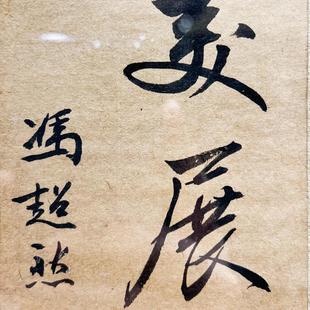 美展
馮超然